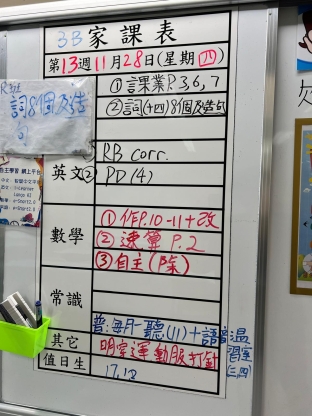 3B 家課表
第13週11月28日(星期四)
R班
詞8個及造句
①課業P.3,6,7
②詞(十四)8個及造句
自主學習 網上平台
RB corr.
英文(2) PD(4)
數學
①作P.10-11+改
②速算 P.2
③自主(除)
常識
普:每月一聽(11)+語音溫習室(三四)
其它
明穿運動服打針
值日生
17,12